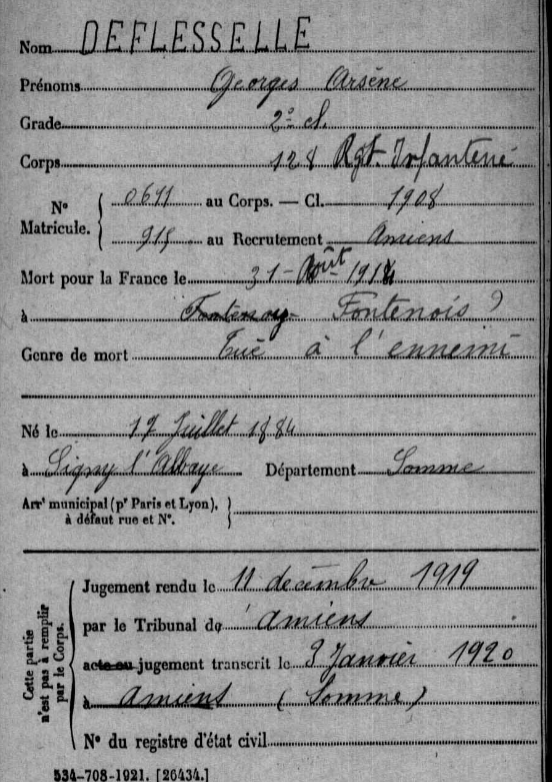 Nom DEFLESSELLE
Prénoms Georges Arsène
Grade 2e cl.
Corps 128 Rgt. Infanterie
N° Matricule. { 0671 au Corps. — Cl. 1908
915 au Recrutement Amiens
Mort pour la France le 31 - Août - 1914
à Fontenoy Fontenois ?
Genre de mort Tué à l'ennemi
Né le 17 Juillet 1884
à Signy l'Abbaye Département Somme
Arrt municipal (pr Paris et Lyon), à défaut rue et N°. }
Cette partie n'est pas à remplir par le Corps. {
Jugement rendu le 11 décembre 1919
par le Tribunal de Amiens
acte ou jugement transcrit le 3 Janvier 1920
à Amiens (Somme)
N° du registre d'état civil
534-708-1921. [26434.]